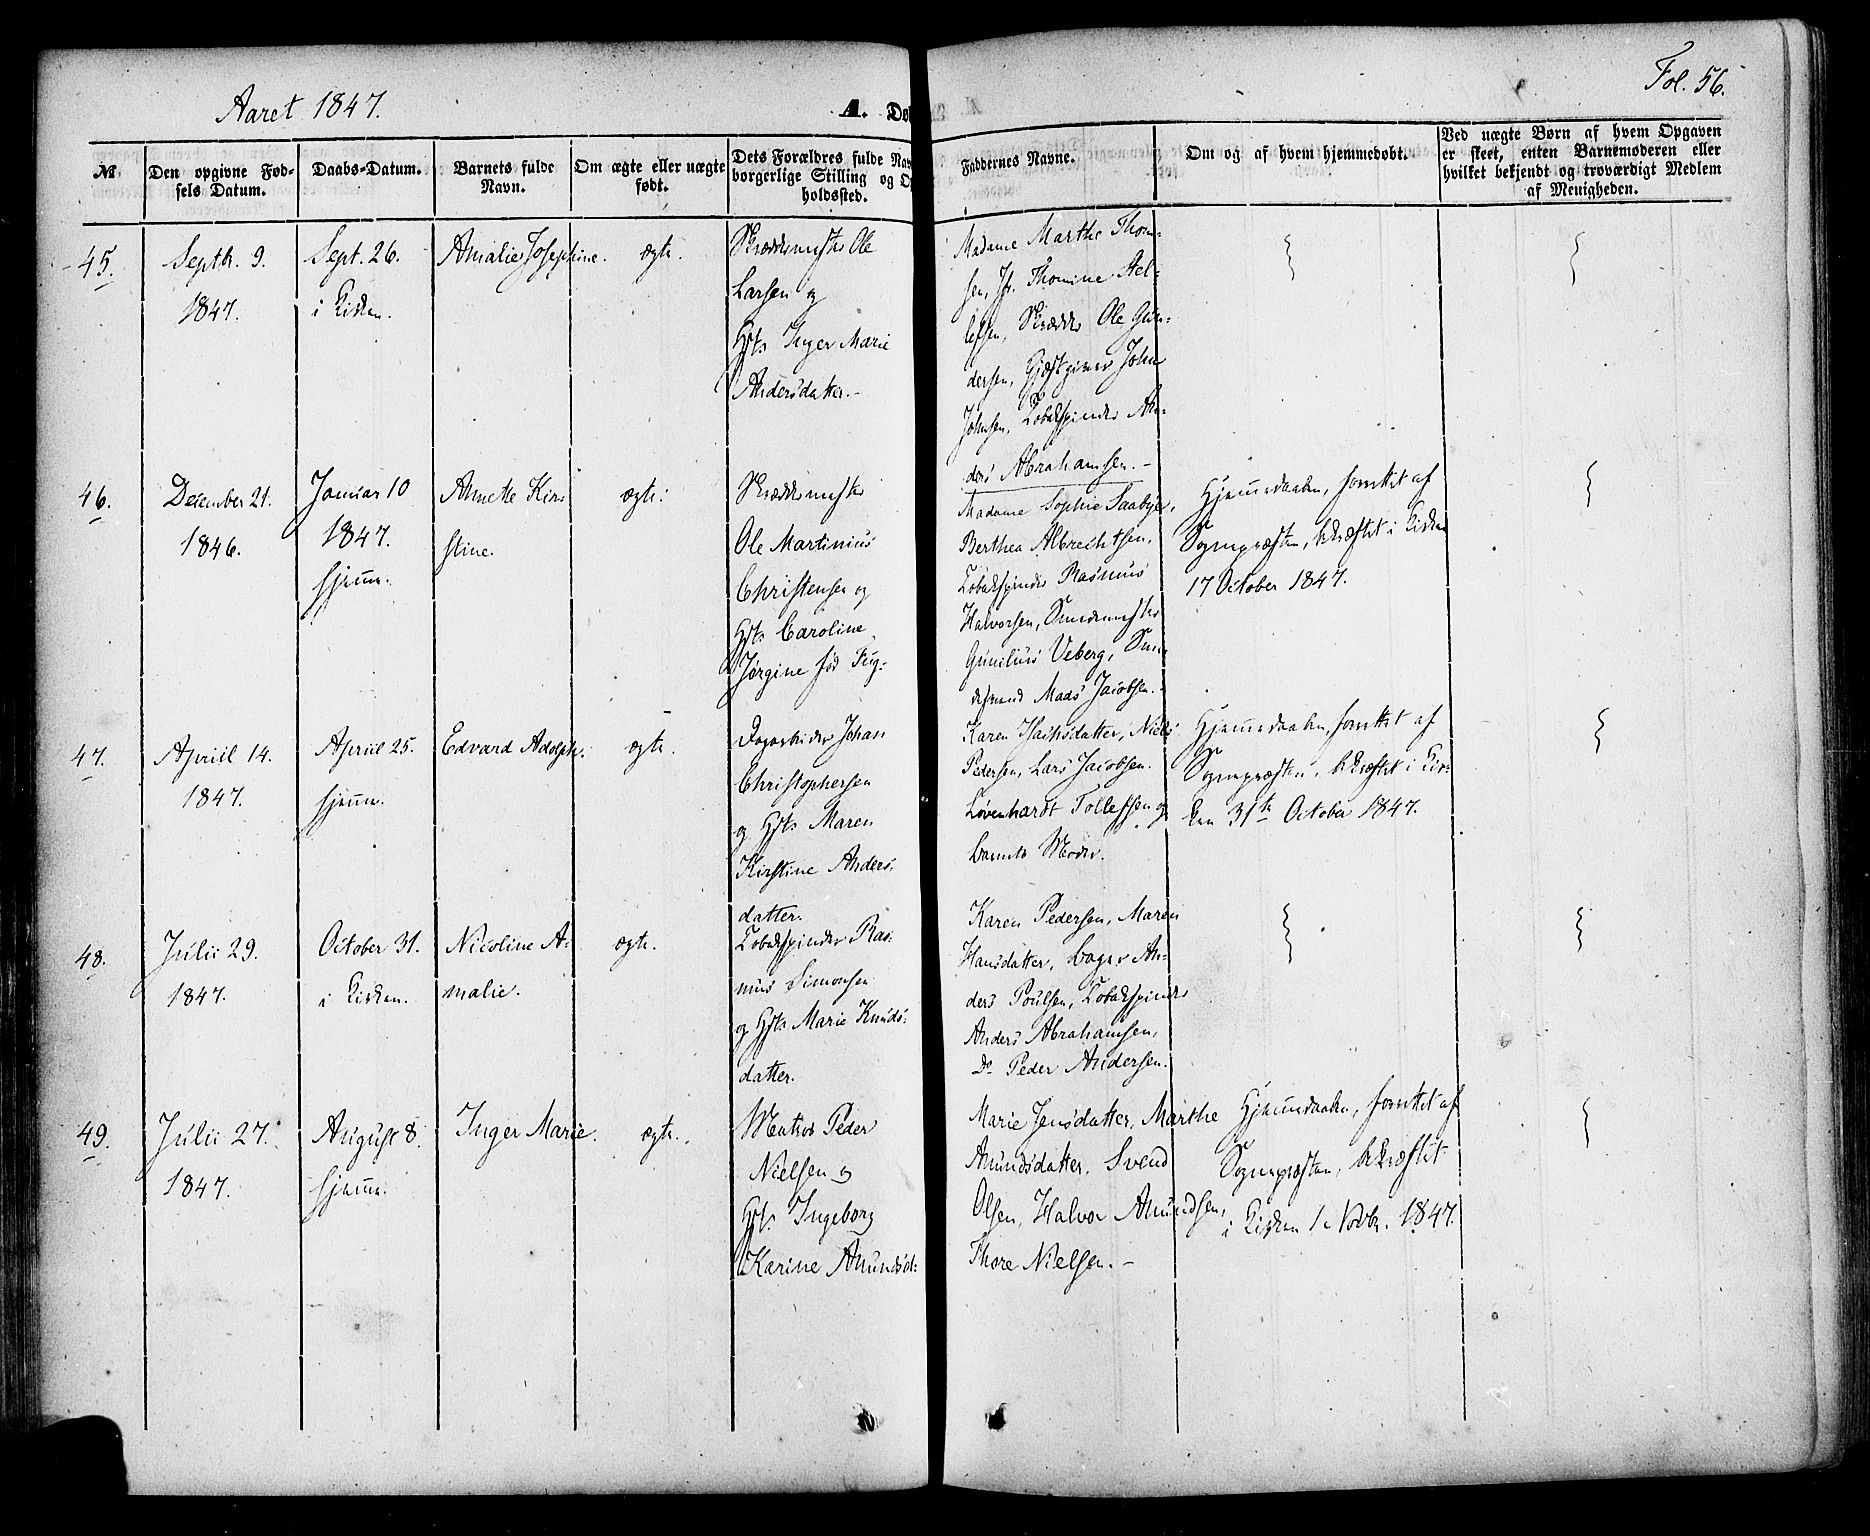 Aaret 1847.
A. Døb
Fol. 56.
№
Den opgivne Fød-
sels Datum.
Daabs-Datum.
Barnets fulde
Navn.
Om ægte eller uægte
født.
Dets Forældres fulde Nav
borgerlige Stilling og Op
holdssted.
Faddernes Navne.
Om og af hvem hjemmedøbt.
Ved uægte Børn af hvem Opgaven
er skeet, enten Barnemoderen eller
hvilket bekjendt og troværdigt Medlem
af Menigheden.
45.
Septbr. 9.
1847.
Sept. 26.
i Kirken.
Amalie Josephine.
ægte.
Skræddermester Ole
Larsen og
Hst. Inger Marie
Andersdatter.-
Madame Marthe Thom-
sen, Jfr. Thomine Stel-
lefsen, Skrædder Ole Gun-
dersen, Gjæstgiver John
Johnsen, Tobakspinder An-
ders Abrahamsen.-
46.
December 21.
1846.
Januar 10
1847.
hjeme.
Annette Kir-
stine.
ægte.
Skræddermester
Ole Martinius
Christensen og
Hst. Caroline
Jørgine fød Fug-
Madame Sophie Saabye,
Berthea Albrechtsen,
Tobakspinder Rasmus
Halvorsen, Smedemester
Gunilius Veberg,
Mads Jacobsen.-
Hjemmedaaben, forrettet af
Sognepræsten, bekræftet i Kirken
17 October 1847.
47.
Apriil 14.
1847.
Apriil 25.
hjeme.
Edvard Adolph.
ægte.
Dagarbeider Johan
Christophersen
og Hst. Maren
Kirstine Anders-
datter.
Karen Isachsdatter, Niels
Pedersen, Lars Jacobsen.
Løvenhardt Tollefsen og
barnets Moder.
Hjemmedaaben, forrettet af
Sognepræsten, bekræftet i Kir-
ken 31te October 1847.
48.
Julii 29.
1847.
October 31.
i Kirken.
Nicoline A-
malie.
ægte.
Tobakspinder Ras-
mus Simonsen
og Hst. Marie Knuds-
datter.
Karen Pedersen, Maren
Hansdatter, bager An-
ders Poulsen, Tobakspinder
Anders Abrahamsen,
Do Peder Andersen.
49.
Julii 27.
1847.
August 8.
hjeme.
Inger Marie.
ægte.
Matros Peder
Nielsen og
Hst. Ingeborg
Karine Amundsd:
Marie Jensdatter, Marthe
Amundsdatter, Svend
Olsen, Halvor Amundsen,
Thore Nielsen.-
Hjemmedaaben, forrettet af
Sognepræsten, bekræftet
i Kirken 1 Novbr. 1847.